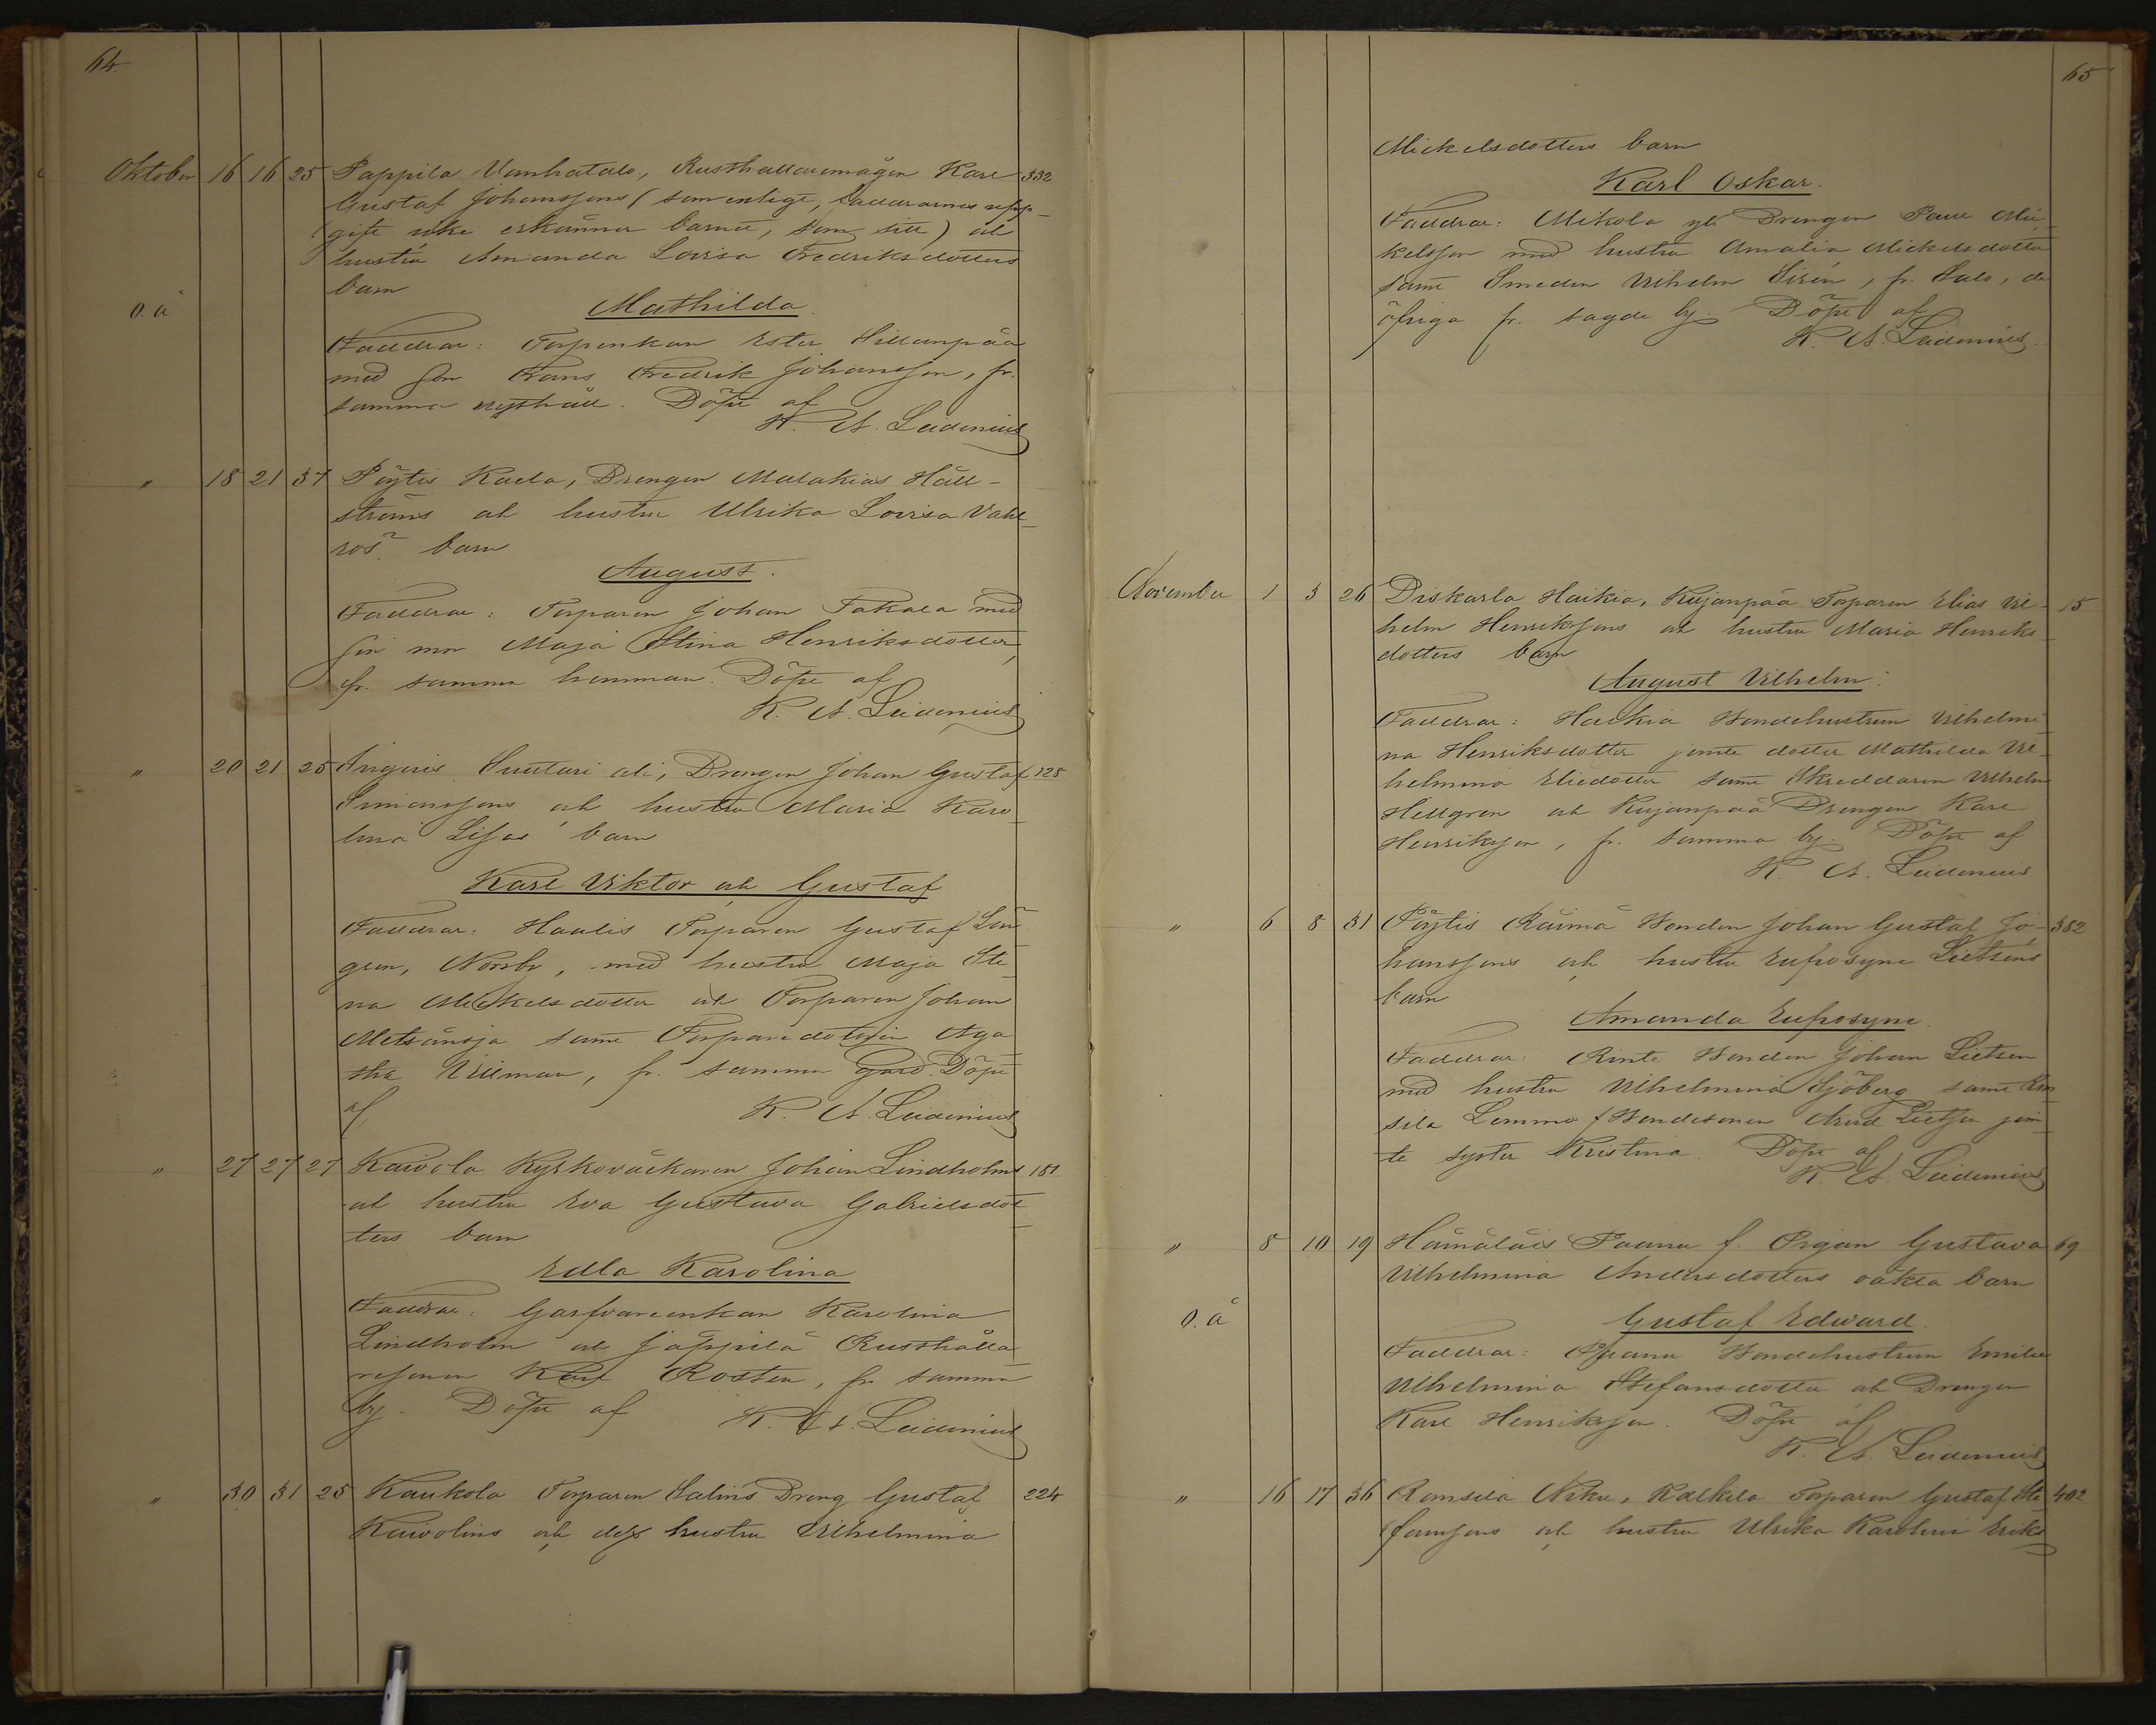 64.
Oktober 16 16 25 Pappila Vanhatalo, Rusthållaremågen Karl 332
Gustaf Johanssons (som enligt, faddrarnes upp-
gift icke erkänner barnet, som sitt) och
hustru Amanda Lovisa Fredriksdotters
barn
O.ä Mathilda.
Faddrar: Torpenkan Ester Sillanpää
med son Frans Fredrik Johansson, fr.
samma rusthåll. Döpt af
K. A. Leidenius
" 18 21 37 Pöytis Kaela, Drengen Malakias Häll-
ströms och hustru Ulrika Lovisa Vahl-
ros' barn
August.
Faddrar: Torparen Johan Takala med
sin mor Maja Stina Henriksdotter,
fr. samma hemman. Döpt af
K. A. Leidenius
" 20 21 25 Anginis Suutari ali, Drengen Johan Gustaf 125
Simonssons och hustru Maria Karo-
lina Lisas barn
Karl Viktor och Gustaf
Faddrar: Haalis Torparen Gustaf Lön-
gren, Norrby, med hustru Maja Sti-
na Mickelsdotter och Torparen Johan
Metsänoja samt Torparedottern Aga-
tha Wiiman, fr. samma gård. Döpt
af K. A. Leidenius
" 27 27 27 Kaivola Kyrkoväktaren Johan Lindholms 181
och hustru Eva Gustava Gabrielsdot-
ters barn
Edla Karolina
Faddrar: Garfvareenkan Karolina
Lindholm och Jäppilä Rusthålla-
resonen Karl Rosten, fr. samma
by. Döpt af K. A. Leidenius
" 30 31 25 Kaukola Torparen Salins Dreng Gustaf 224
Kaivolins och dess hustru Vilhelmina
65
Mickelsdotters barn
Karl Oskar.
Faddrar: Mikola yli Drengen Paul Mic-
kelsson med hustru Amalia Mickelsdotter
samt Smeden Vilhelm Sirén, fr. Salo, de
öfriga fr. sagde by. Döpt af
K. A. Leidenius.
November 1 3 26 Diskarla Haikia, Kujanpää Torparen Elias Vil- 15
helm Henrikssons och hustru Maria Henriks-
dotters barn
August Vilhelm.
Faddrar: Haikia Bondehustrun Vilhelmi-
na Henriksdotter jemte dotter Mathilda Vil-
helmina Eliedotter samt Skreddaren Vilhelm
Hellgren och Kujanpää Drengen Karl
Henriksson, fr. samma by. Döpt af
K. A. Leidenius
" 6 8 31 Pöytis Räimä Bonden Johan Gustaf Jo- 382
hanssons och hustru Eufrosyne Lietséns
barn
Amanda Eufrosyne.
Faddrar: Rinte Bonden Johan Lietsen
med hustru Vilhelmina Sjöberg samt Ran-
sila Lemmo f Bondesonen Arvid Lietsen jem-
te syster Kristina. Döpt af
K. A. Leidenius
" 8 10 19 Hämäläis Paana f. Pigan Gustava 69
Vilhelmina Andersdotters oäkta barn
O.ä Gustaf Edward.
Faddrar: Paana Bondehustrun Emilia
Vilhelmina Stefansdotter och Drengen
Karl Henriksson. Döpt af
K. A. Leidenius
" 16 17 36 Ransila Niku, Kälkilä Torparen Gustaf Ste- 402
fanssons och hustru Ulrika Karolina Eriks-